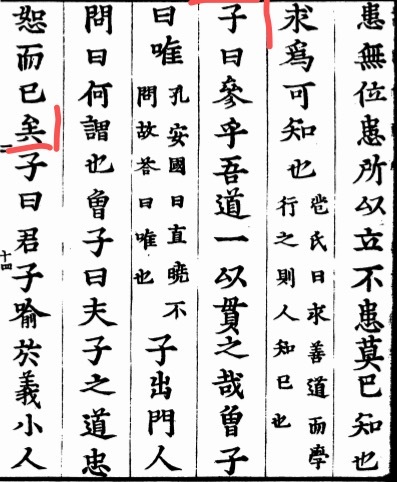 患無位患所以立不患莫已知也
求爲可知也苞氏曰求善道而學
行之則人知已也
子曰參乎吾道一以貫之哉曾子
曰唯孔安國曰直曉不
問故荅曰唯也子出門人
問曰何謂也曾子曰夫子之道忠
恕而已矣子曰君子喻於義小人
十四